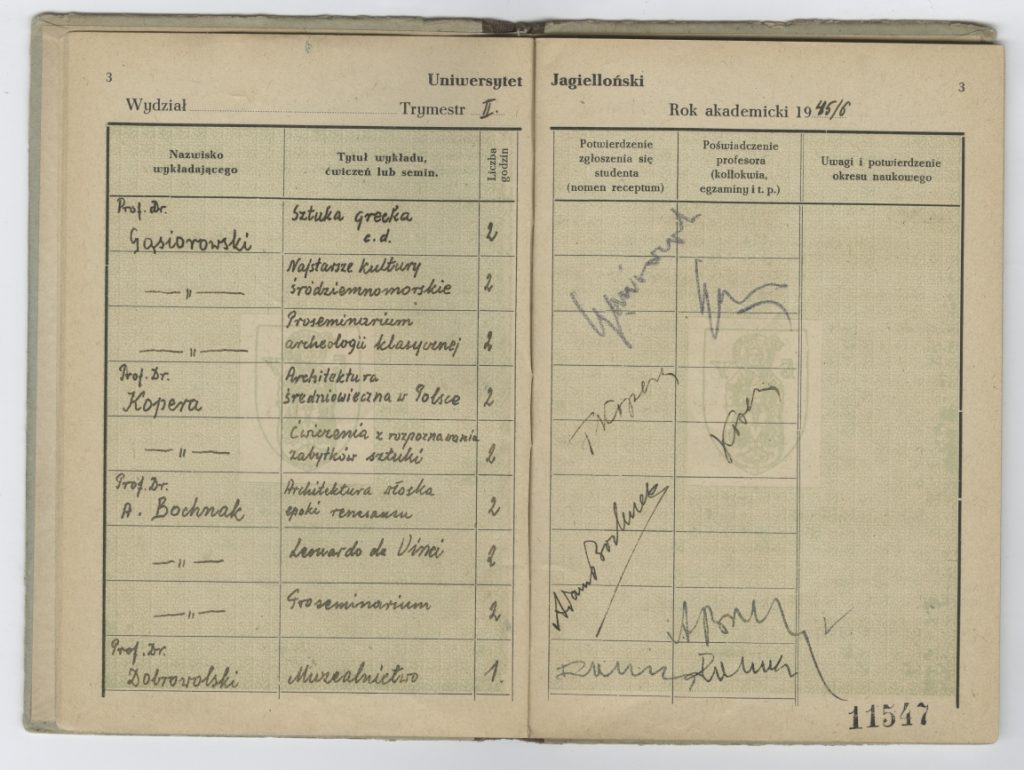 3
Uniwersytet Jagielloński
3
Wydział
Trymestr II.
Rok akademicki 1945/6
Nazwisko
wykładającego
Tytuł wykładu,
ćwiczeń lub semin.
Liczba
godzin
Potwierdzenie
zgłoszenia się
studenta
(nomen receptum)
Poświadczenie
profesora
(kollokwia,
egzaminy i t. p.)
Uwagi i potwierdzenie
okresu naukowego
Prof. Dr.
Gąsiorowski
Sztuka grecka
c.d.
2
— „ —
Najstarsze kultury
śródziemnomorskie
2
— „ —
Proseminarium
archeologii klasycznej
2
Prof. Dr.
Kopera
Architektura
średniowieczna w Polsce
2
— „ —
Ćwiczenia z rozpoznawania
zabytków sztuki
2
Prof. Dr.
A. Bochnak
Architektura włoska
epoki renesansu
2
— „ —
Leonardo da Vinci
2
— „ —
Proseminarium
2
Prof. Dr.
Dobrowolski
Muzealnictwo
1.
Gąsiorowski
F Kopera
Adam Bochnak
11547